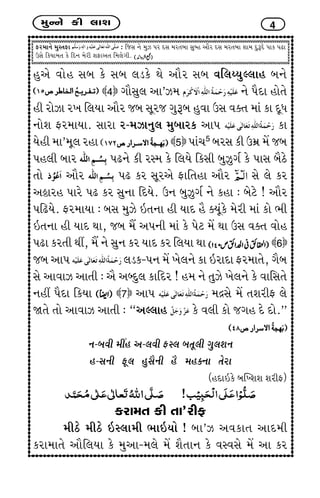 મુન્ને કી લાશ 4
ફરમાને મુસ્તફા صَلَّى اللهُ تَعَالٰى عَلَيْهِ وَاٰلِهٖ وَسَلَّم : જિસ ને મુઝ પર દસ મરતબા સુબ્હ ઔર દસ મરતબા શામ દુરૂદે પાક પઢા
ઉસે કિયામત કે દિન મેરી શફાઅત મિલેગી.
હુએ વોહ સબ કે સબ લડકે થે ઔર સબ વલિય્યુલ્લાહ બને
(تفریحُ الخاطر ص١٥) ﴾4﴿ ગૌસુલ આ'ઝમ عَلَيْهِ رَحْمَةُ اللهِ الْاَكْرَم ને પૈદા હોતે
હી રોઝા રખ લિયા ઔર જબ સૂરજ ગુરૂબ હુવા ઉસ વક્ત માં કા દૂધ
નોશ ફરમાયા. સારા ર-મઝાનુલ મુબારક આપ رَحْمَةُ اللهِ تَعَالٰى عَلَيْه કા
યેહી મા'મૂલ રહા (بَهجةُ الاسرار ص١٧٢) ﴾5﴿ પાંચ5 બરસ કી ઉમ્ર મેં જબ
પહલી બાર بِسْمِ الله પઢને કી રસ્મ કે લિયે કિસી બુઝુર્ગ કે પાસ બૈઠે
તો اَعُوْذُ ઔર بِسْمِ الله પઢ કર સૂરએ ફાતિહા ઔર الٓمّٓ સે લે કર
અઠારહ પારે પઢ કર સુના દિયે. ઉન બુઝુર્ગ ને કહા : બેટે ! ઔર
પઢિયે. ફરમાયા : બસ મુઝે ઇતના હી યાદ હૈ ક્યૂંકે મેરી માં કો ભી
ઇતના હી યાદ થા, જબ મેં અપની માં કે પેટ મેં થા ઉસ વક્ત વોહ
પઢા કરતી થીં, મેં ને સુન કર યાદ કર લિયા થા ﴾6﴿
જબ આપ رَحْمَةُ اللهِ تَعَالٰى عَلَيْه લડક-પન મેં ખેલને કા ઇરાદા ફરમાતે, ગૈબ
સે આવાઝ આતી : એ અબ્દુલ કાદિર ! હમ ને તુઝે ખેલને કે વાસિતે
નહીં પૈદા કિયા (ايضاً) ﴾7﴿ આપ رَحْمَةُ اللهِ تَعَالٰى عَلَيْه મદ્રસે મેં તશરીફ લે
જાતે તો આવાઝ આતી : “અલ્લાહ عَزَّوَجَلَّ કે વલી કો જગહ દે દો.”
(بَهجةُ الاسرار ص٤٨)
ન-બવી મીંહ અ-લવી ફસ્લ બતૂલી ગુલશન
હ-સની ફૂલ હુસૈની હૈ મહકના તેરા
(હદાઇકે બખ્શિશ શરીફ)
صَلُّوْا عَلَى الْحَبِيْب ! صَلَّى اللهُ تَعَالٰى عَلٰى مُحَمَّد
કરામત કી તા'રીફ
મીઠે મીઠે ઇસ્લામી ભાઇયો ! બા'ઝ અવકાત આદમી
કરામાતે ઔલિયા કે મુઆ-મલે મેં શૈતાન કે વસ્વસે મેં આ કર